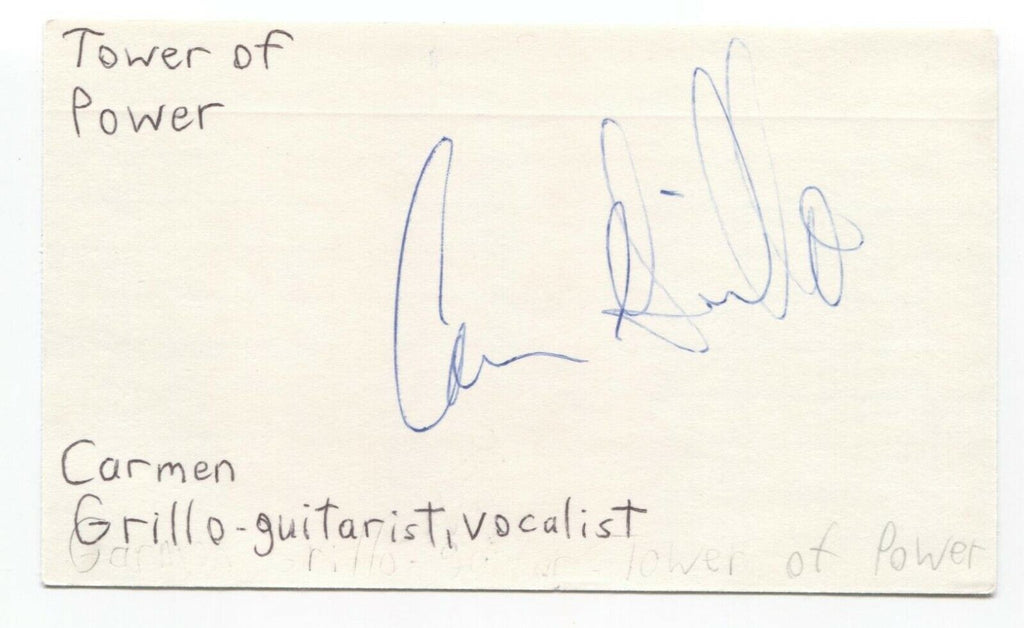 Tower of
Power
Carmen Grillo
Carmen
Grillo-guitarist, vocalist
Carmen Grillo- Tower of Power